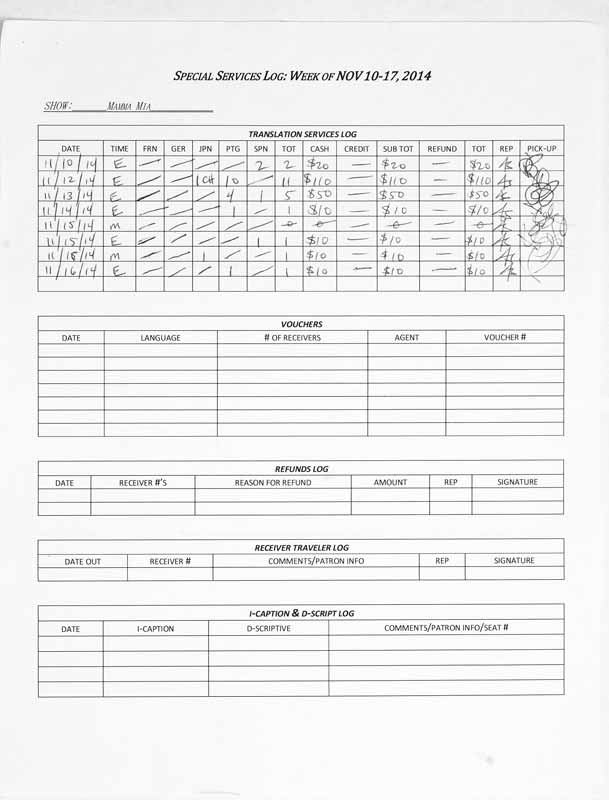 SPECIAL SERVICES LOG: WEEK OF NOV 10-17, 2014
SHOW: MAMMA MIA
TRANSLATION SERVICES LOG
DATE TIME FRN GER JPN PTG SPN TOT CASH CREDIT SUB TOT REFUND TOT REP PICK-UP
11/10/14 E — — — — 2 2 $20 — $20 — $20
11/12/14 E — — 1CH 10 — 11 $110 — $110 — $110
11/13/14 E — — — 4 1 5 $50 — $50 — $50
11/14/14 E — — — 1 — 1 $10 — $10 — $10
11/15/14 M — — — — — 0 0 — 0 — 0
11/15/14 E — — — — 1 1 $10 — $10 — $10
11/ /14 M — — 1 — — 1 $10 — $10 — $10
11/16/14 E — — — 1 — 1 $10 — $10 — $10
VOUCHERS
DATE LANGUAGE # OF RECEIVERS AGENT VOUCHER #
REFUNDS LOG
DATE RECEIVER #'S REASON FOR REFUND AMOUNT REP SIGNATURE
RECEIVER TRAVELER LOG
DATE OUT RECEIVER # COMMENTS/PATRON INFO REP SIGNATURE
I-CAPTION & D-SCRIPT LOG
DATE I-CAPTION D-SCRIPTIVE COMMENTS/PATRON INFO/SEAT #